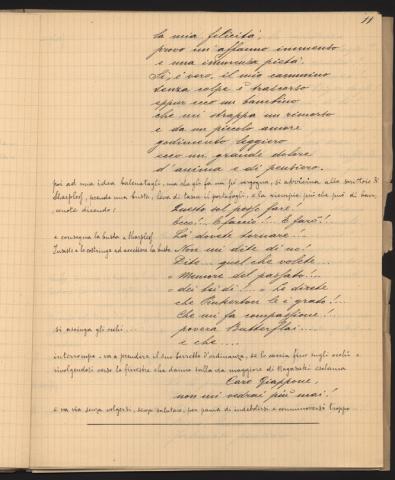 11
la mia felicità,
provo un'affanno immenso
e una immensa pietà.
Sì, è vero, il mio cammino
senza colpe è trascorso
eppur ecco un bambino
che mi strappa un rimorso
e da un piccolo amore
godimento leggiero
ecco un grande dolore
d'anima e di pensiero.
poi ad una idea balenatagli, ma che gli fa un po' vergogna, si avvicina allo scrittoio di
Sharpless, prende una busta, leva di tasca il portafogli, e la riempie più che può di banc
note dicendo:
Questo sol posso fare!
Ecco!... E faccio!... E farò!...
e consegna la busta a Sharpless
Là dovete tornare!...
Insiste e lo costringe ad accettare la busta
Non mi dite di no!
Dite... quel che volete...
"Memore del passato!...
"dei bei dì!..." Le direte
che Pinkerton le è grato!...
Che mi fa compassione!...
si asciuga gli occhi...
povera Butterfly...
e che....
interrompe, va a prendere il suo berretto d'ordinanza, se lo caccia fino sugli occhi e
rivolgendosi verso le finestre che danno sulla via maggiore di Nagasaki esclama
Caro Giappone,
non mi vedrai più mai!
e va via senza volgersi, senza salutare, per paura di indebolirsi e commuoversi troppo